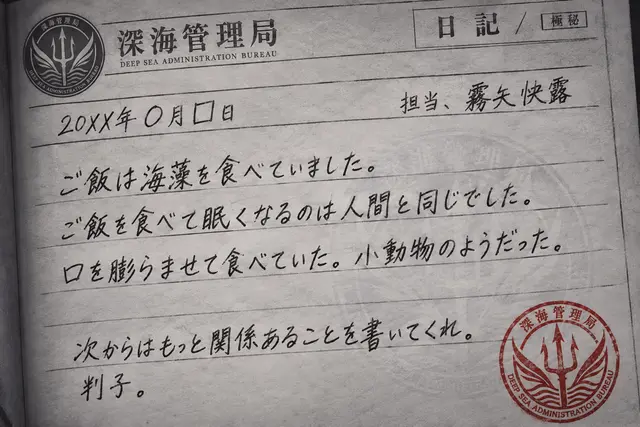 深海管理局
DEEP SEA ADMINISTRATION BUREAU
日記/
極秘
深海管理局
20XX年〇月□日
担当、霧矢快露
ご飯は海藻を食べていました。
ご飯を食べて眠くなるのは人間と同じでした。
口を膨らませて食べていた。小動物のようだった。
次からはもっと関係あることを書いてくれ。
判子。
深海管理局
DEEP SEA ADMINISTRATION BUREAU